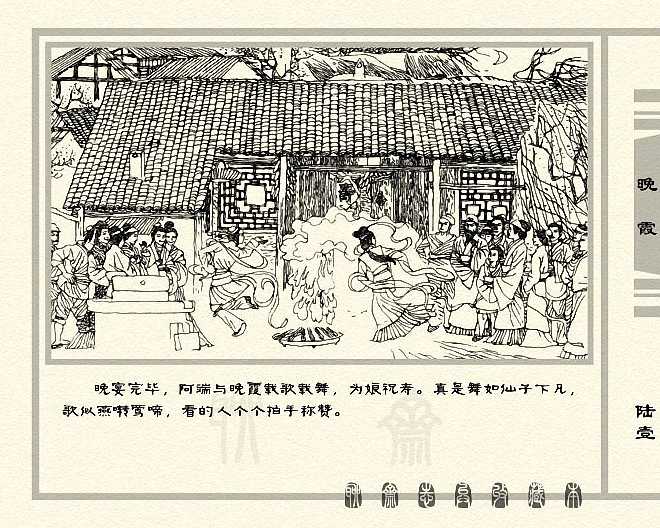 晚宴完毕，阿端与晚霞载歌载舞，为娘祝寿。真是舞如仙子下凡，
歌似燕啭莺啼，看的人个个拍手称赞。
晚霞
陆壹